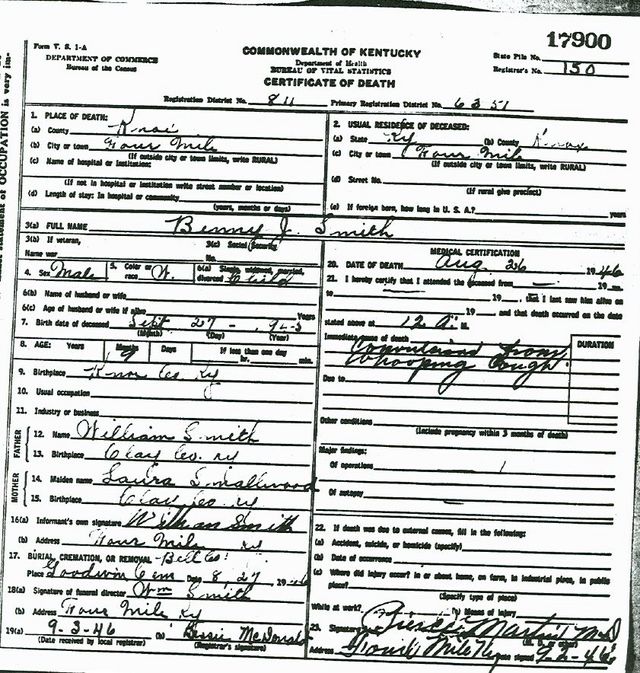 17900
Form V. S. 1-A
DEPARTMENT OF COMMERCE
Bureau of the Census
COMMONWEALTH OF KENTUCKY
Department of Health
BUREAU OF VITAL STATISTICS
CERTIFICATE OF DEATH
State File No.
Registrar's No. 150
Registration District No. 811 Primary Registration District No. 6351
statement of OCCUPATION is very im-
1. PLACE OF DEATH:
(a) County Knox
(b) City or town Four Mile
(If outside city or town limits, write RURAL)
(c) Name of hospital or institution:
(If not in hospital or institution write street number or location)
(d) Length of stay: In hospital or community
(years, months or days)
2. USUAL RESIDENCE OF DECEASED:
(a) State Ky (b) County Knox
(c) City or town Four Mile
(If outside city or town limits, write RURAL)
(d) Street No.
(If rural give precinct)
(e) If foreign born, how long in U. S. A.? years
3(a) FULL NAME Benny J. Smith
3(b) If veteran, 3(c) Social Security
Name war No.
4. Sex Male 5. Color or race W. 6(a) Single, widowed, married, divorced Child
6(b) Name of husband or wife
6(c) Age of husband or wife if alive Years
7. Birth date of deceased Sept 27
(Month) (Day) (Year)
8. AGE: Years Months Days If less than one day
9 hr. min.
9. Birthplace Knox Co. Ky
10. Usual occupation
11. Industry or business
FATHER
12. Name William Smith
13. Birthplace Clay Co. Ky
MOTHER
14. Maiden name Laura Smallwood
15. Birthplace Clay Co. Ky
16(a) Informant's own signature William Smith
(b) Address Four Mile Ky
17. BURIAL, CREMATION, OR REMOVAL Bell Co.
Place Goodwin Cem Date 8, 27 1946
18(a) Signature of funeral director Wm Smith
(b) Address Four Mile Ky
19(a) 9-3-46 (b) Bessie McDonald
(Date received by local registrar) (Registrar's signature)
MEDICAL CERTIFICATION
20. DATE OF DEATH Aug 26 1946
21. I hereby certify that I attended the deceased from 19
19, that I last saw him alive on
19 and that death occurred on the date
stated above at 12 A. M.
Immediate cause of death DURATION
Convulsions from
Whooping Cough
Due to
Other conditions
(Include pregnancy within 3 months of death)
Major findings:
Of operations
Of autopsy
22. If death was due to external causes, fill in the following:
(a) Accident, suicide, or homicide (specify)
(b) Date of occurrence
(c) Where did injury occur? in or about home, on farm, in industrial place, in public place?
(Specify type of place)
While at work? (e) Means of injury
23. Signature Martin M.D.
Address Four Mile Ky Date signed 9-2-46